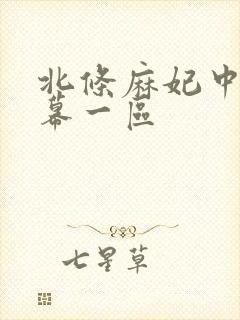 北條麻妃中
幕一區
七星草